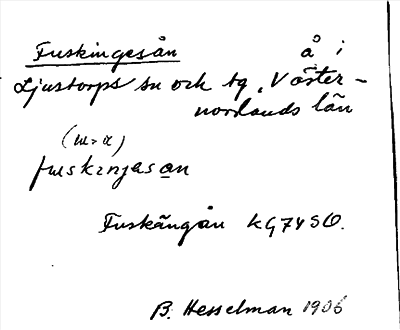 Fuskingesån å i
Ljustorps sn och tg, Väster-
norrlands län
(u=x)
fuskɪnjesan
Fuskängån kG74SO.
B. Hesselman 1906